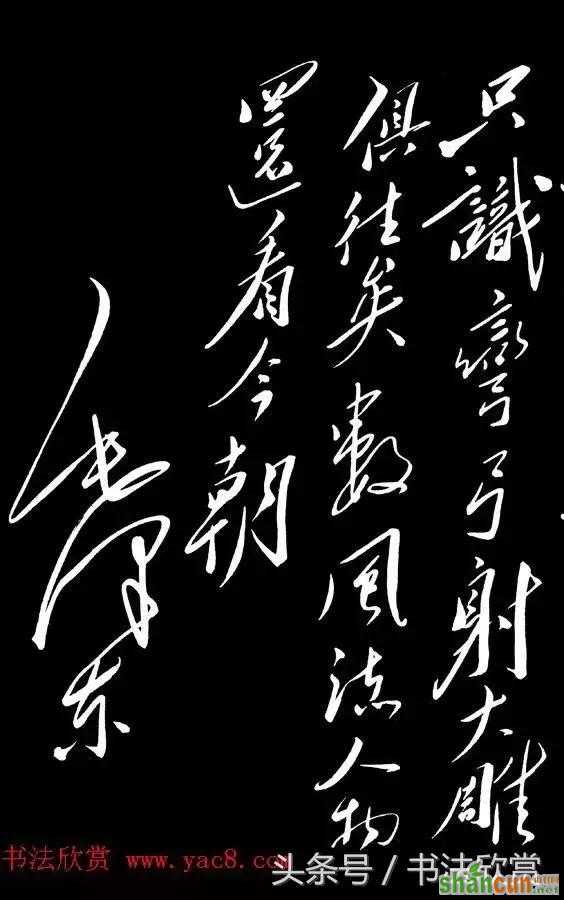 只識彎弓射大雕
俱往矣數風流人物
還看今朝
毛澤东
书法欣赏 www.yac8.com
头条号／书法欣赏
shancun
.net